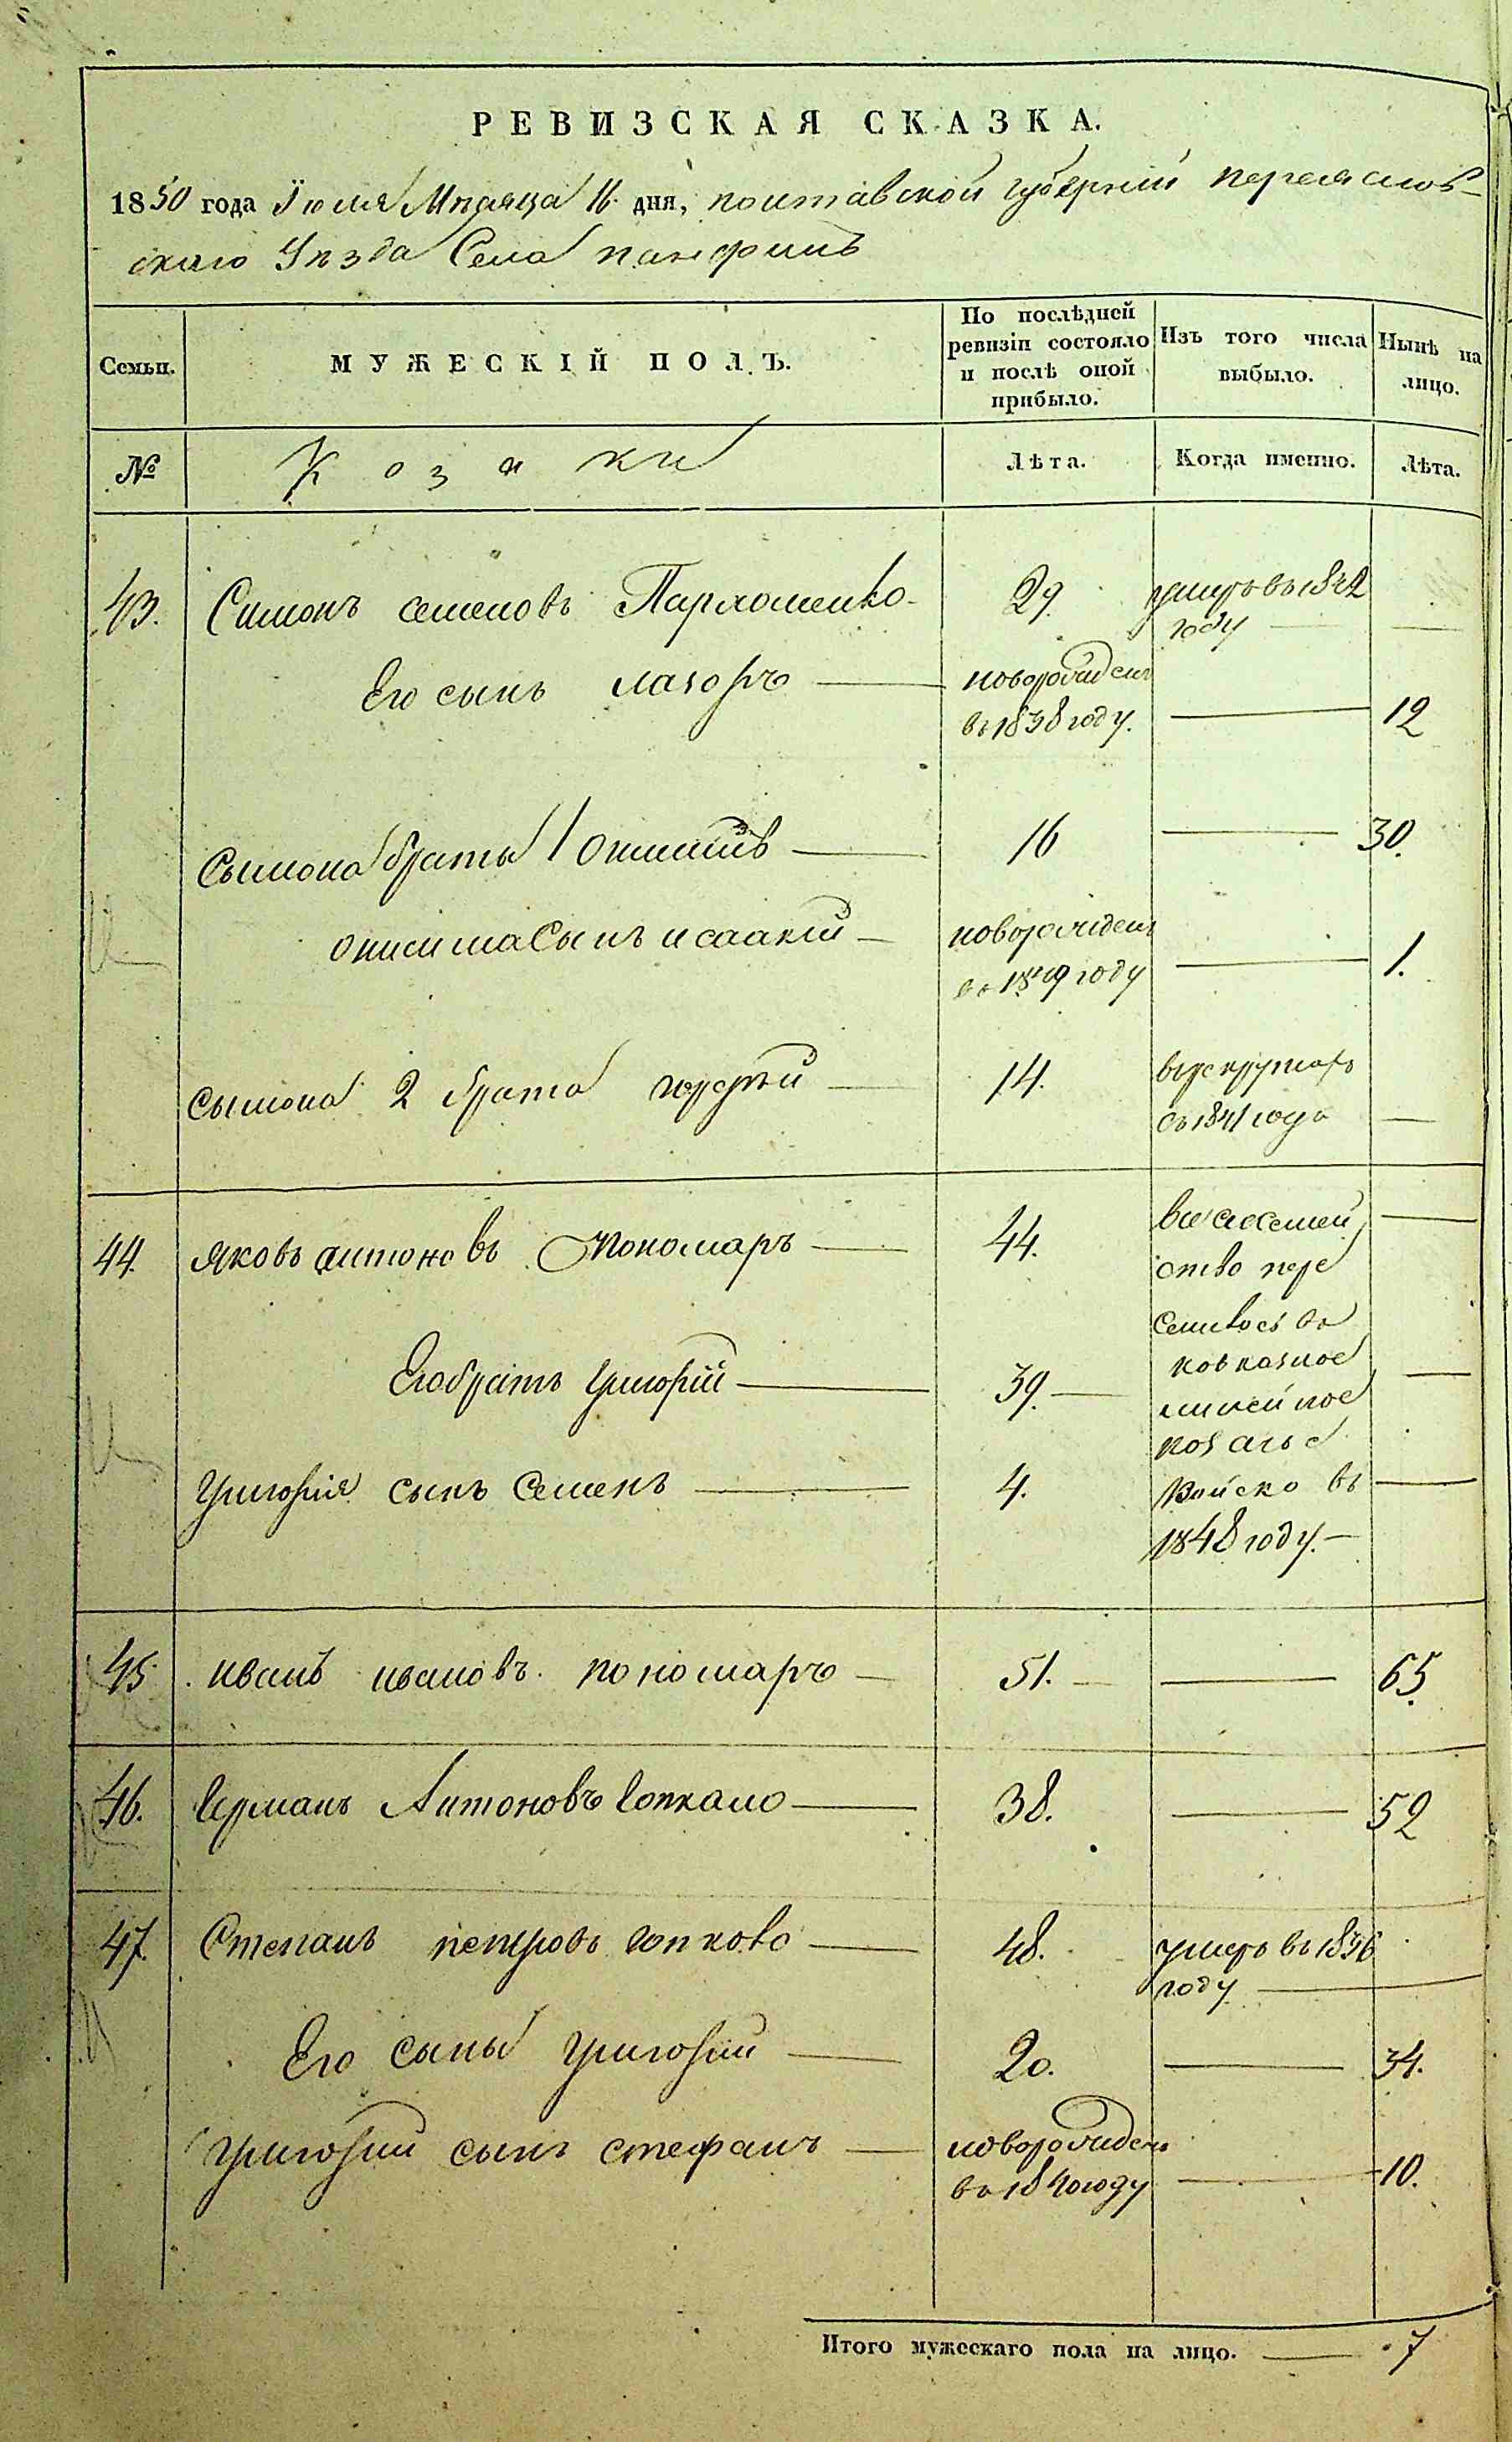 РЕВИЗСКАЯ СКАЗКА.
1850 года Іюля Мѣсяца 11 дня, полтавской губерніи переяслов-
скаго Уѣзда Села панфилъ
Семьи.
МУЖЕСКІЙ ПОЛЪ.
По послѣдней ревизіи состояло и послѣ оной прибыло.
Изъ того числа выбыло.
Нынѣ на лицо.
№
Козаки
Лѣта.
Когда именно.
Лѣта.
43. Симонъ семеновъ Пархоменко 29. умеръ въ 1842
году
Его сынъ лазоръ новорожденъ
въ 1838 году. 12
Сымона браты 1 16 30.
сынъ исаакій новорожденъ
въ 1849 году 1.
Сымона 2 брата гордѣй 14. въ рекрутахъ
съ 1841 года
44. Яковъ антоновъ Пономаръ 44. все семей
ство пере
селилось въ
Его братъ григорій 39. ковказкое
линейное
козачье
григорія сынъ Семенъ 4. Войско въ
1848 году.
45. иванъ ивановъ пономаръ 51. 65.
46. Антоновъ 38. 52
47. Степанъ петровъ 48. умеръ въ 1836
году
Его сыны григорій 20. 34.
григорій сынъ стефанъ новорожденъ
въ 1840 году 10.
Итого мужескаго пола на лицо. 7